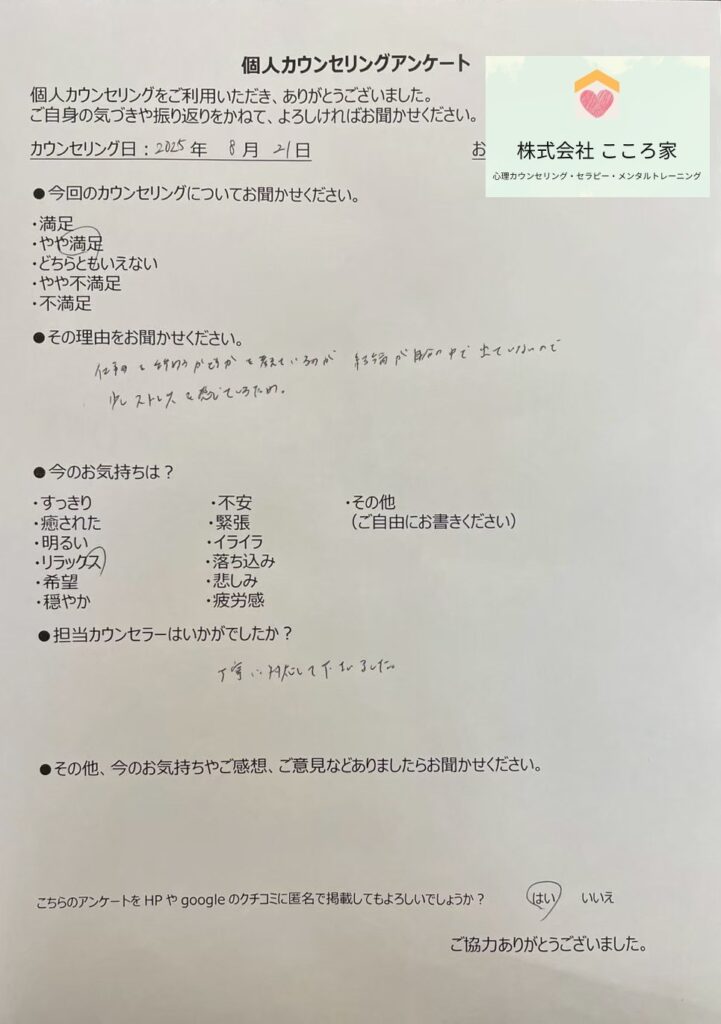 個人カウンセリングアンケート
個人カウンセリングをご利用いただき、ありがとうございました。
ご自身の気づきや振り返りをかねて、よろしければお聞かせください。
カウンセリング日：2025年 8月 21日
お
株式会社 こころ家
心理カウンセリング・セラピー・メンタルトレーニング
●今回のカウンセリングについてお聞かせください。
・満足
・やや満足
・どちらともいえない
・やや不満足
・不満足
●その理由をお聞かせください。
仕事を辞めるかどうかを考えているのが 結論が自分の中で出ていないので
少しストレスを感じているため。
●今のお気持ちは？
・すっきり ・不安 ・その他
・癒された ・緊張 （ご自由にお書きください）
・明るい ・イライラ
・リラックス ・落ち込み
・希望 ・悲しみ
・穏やか ・疲労感
●担当カウンセラーはいかがでしたか？
丁寧に対応して下さいました。
●その他、今のお気持ちやご感想、ご意見などありましたらお聞かせください。
こちらのアンケートをHPやgoogleのクチコミに匿名で掲載してもよろしいでしょうか？ はい いいえ
ご協力ありがとうございました。